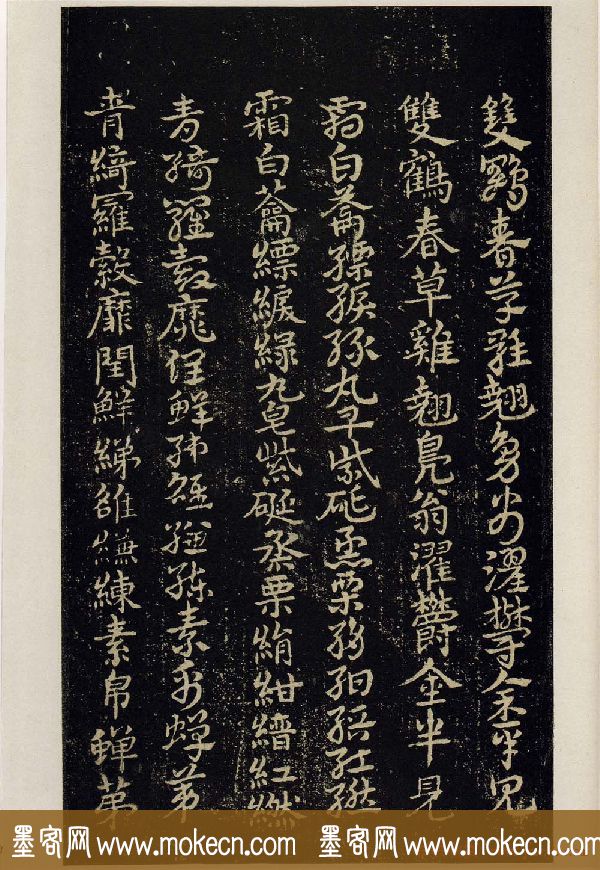 雙鶴春草雞翹鳧翁濯鬱金半見
雙鶴春草雞翹鳧翁濯鬱金半見
霜白蘥縹綟綠丸皂紫硟烝栗絹紺縉紅繎
霜白蘥縹綟綠丸皂紫硟烝栗絹紺縉紅繎
青綺羅縠靡閏鮮綈雒縑練素帛蟬第
青綺羅縠靡閏鮮綈雒縑練素帛蟬第
墨客网 www.mokecn.com 墨客网 www.mokecn.com